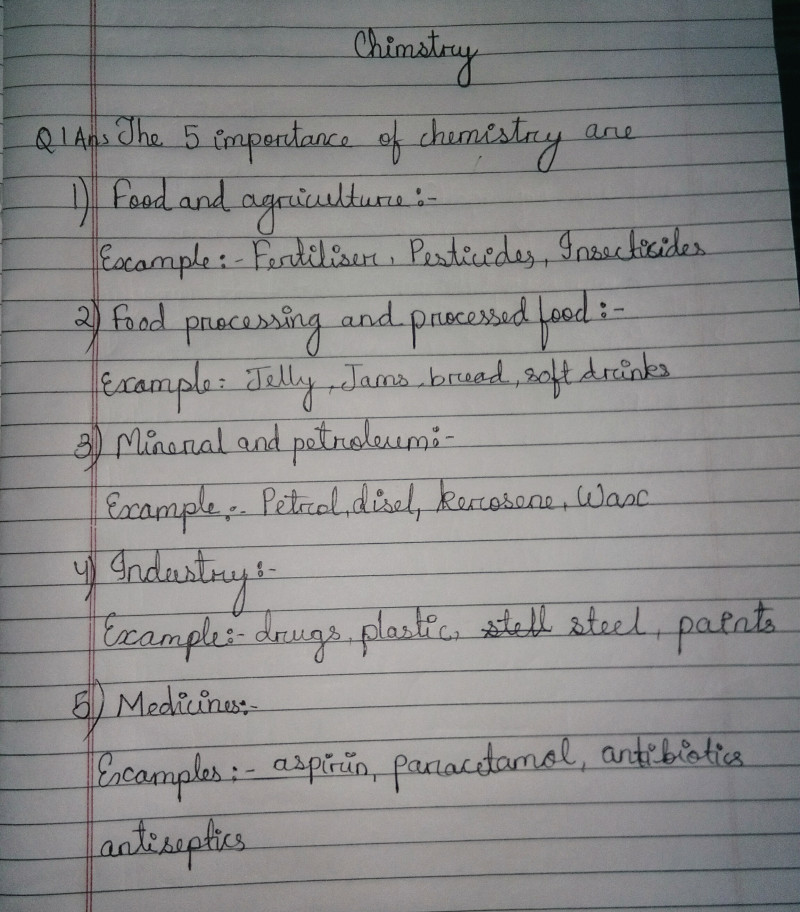 Chimstry
Q1Ans The 5 importance of chemistry are
1) Food and agriculture :-
Example :- Fertiliser, Pesticides, Insecticides
2) Food processing and processed food :-
Example : Jelly, Jams, bread, soft drinks
3) Mineral and petroleum :-
Example :- Petrol, disel, kerosene, Wax
4) Industry :-
Example :- drugs, plastic, stell steel, paints
5) Medicines :-
Examples :- aspirin, paracetamol, antibiotics
antiseptics